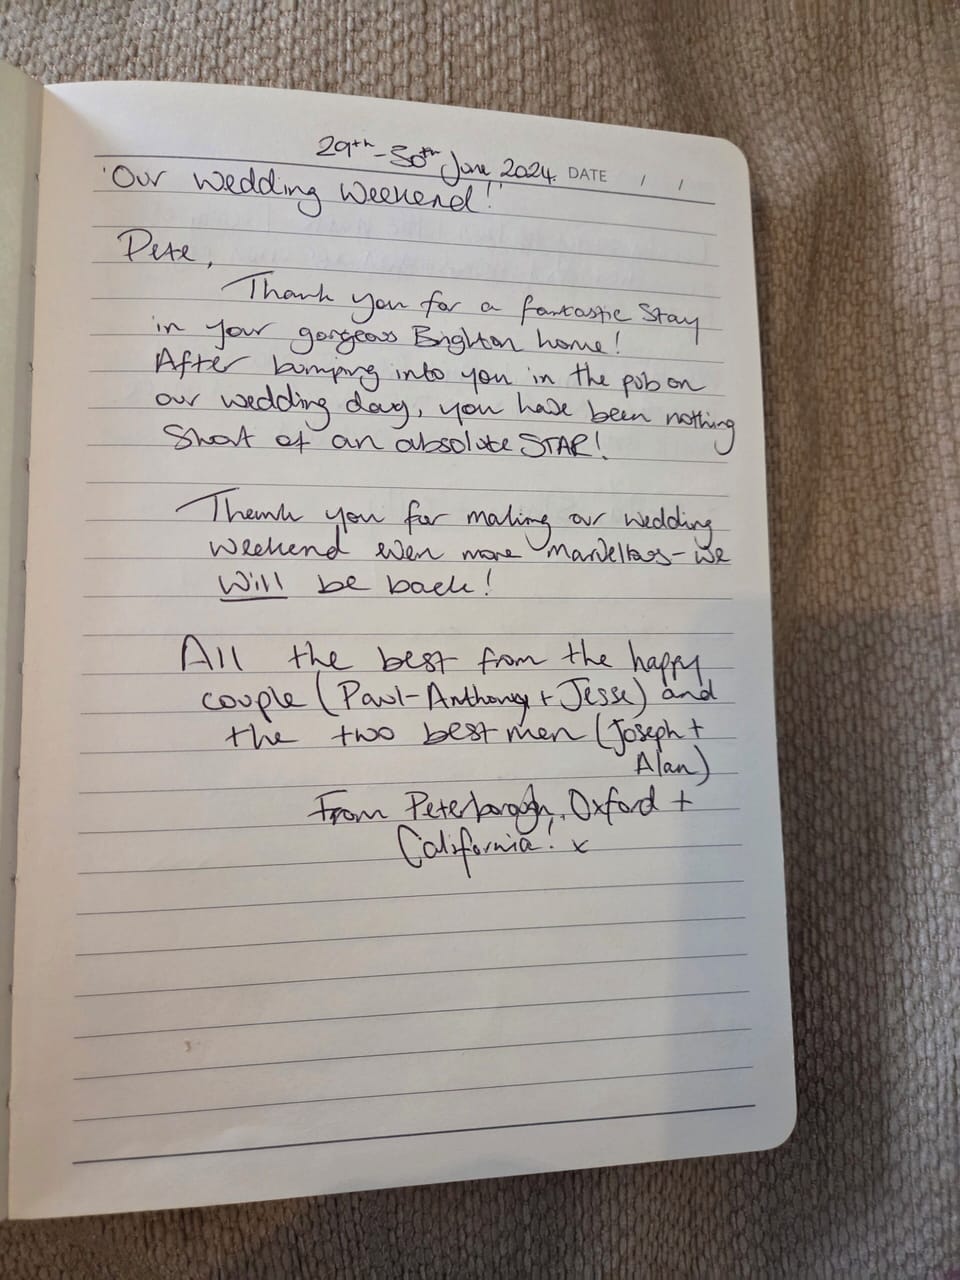 29th-30th June 2024. DATE / /
'Our Wedding Weekend!'
Pete,
Thank you for a fantastic stay
in your gorgeous Brighton home!
After bumping into you in the pub on
our wedding day, you have been nothing
Short of an absolute STAR!
Thank you for making our wedding
weekend even more marvellous - we
Will be back!
All the best from the happy
couple (Paul-Anthony + Jesse) and
the two best men (Joseph +
Alan)
From Peterborough, Oxford +
California! x